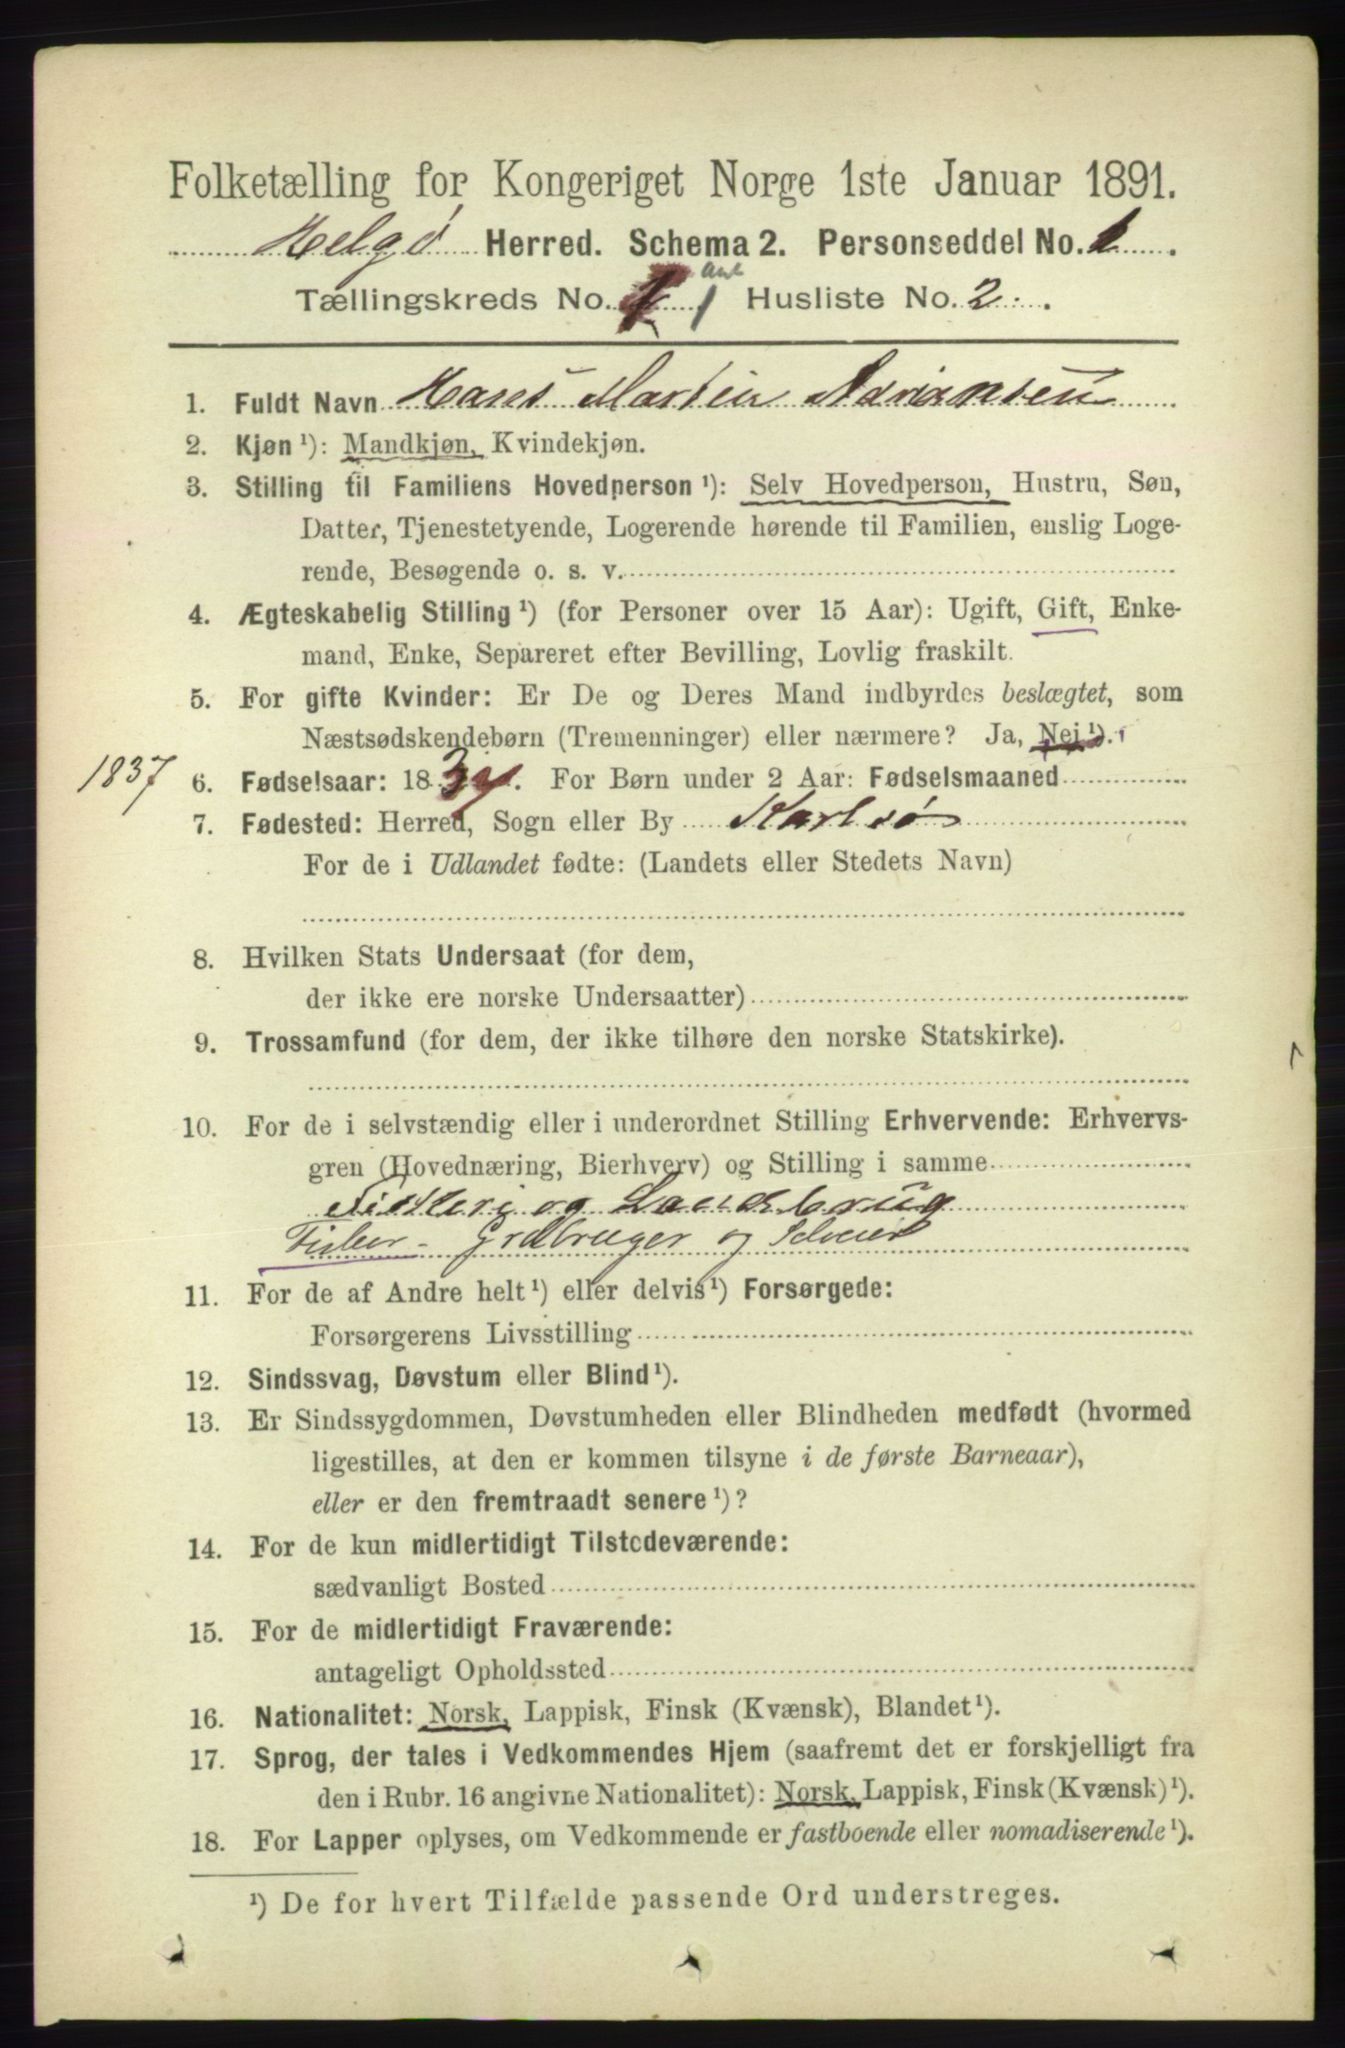 Folketælling for Kongeriget Norge 1ste Januar 1891.
Helgø Herred. Schema 2. Personseddel No. 1.
Tællingskreds No. 1 Husliste No. 2.
1. Fuldt Navn Hans Martin Adriansen
2. Kjøn ¹): Mandkjøn, Kvindekjøn.
3. Stilling til Familiens Hovedperson ¹): Selv Hovedperson, Hustru, Søn,
Datter, Tjenestetyende, Logerende hørende til Familien, enslig Loge-
rende, Besøgende o. s. v.
4. Ægteskabelig Stilling ¹) (for Personer over 15 Aar): Ugift, Gift, Enke-
mand, Enke, Separeret efter Bevilling, Lovlig fraskilt.
5. For gifte Kvinder: Er De og Deres Mand indbyrdes beslægtet, som
Næstsødskendebørn (Tremenninger) eller nærmere? Ja, Nei ¹).
1837
6. Fødselsaar: 1837. For Børn under 2 Aar: Fødselsmaaned
7. Fødested: Herred, Sogn eller By Karlsø
For de i Udlandet fødte: (Landets eller Stedets Navn)
8. Hvilken Stats Undersaat (for dem,
der ikke ere norske Undersaatter)
9. Trossamfund (for dem, der ikke tilhøre den norske Statskirke).
10. For de i selvstændig eller i underordnet Stilling Erhvervende: Erhvervs-
gren (Hovednæring, Bierhverv) og Stilling i samme
Fiskeri og Landbrug
Fisker - Grdbruger og Selveier
11. For de af Andre helt ¹) eller delvis ¹) Forsørgede:
Forsørgerens Livsstilling
12. Sindssvag, Døvstum eller Blind ¹).
13. Er Sindssygdommen, Døvstumheden eller Blindheden medfødt (hvormed
ligestilles, at den er kommen tilsyne i de første Barneaar),
eller er den fremtraadt senere ¹)?
14. For de kun midlertidigt Tilstedeværende:
sædvanligt Bosted
15. For de midlertidigt Fraværende:
antageligt Opholdssted
16. Nationalitet: Norsk, Lappisk, Finsk (Kvænsk), Blandet ¹).
17. Sprog, der tales i Vedkommendes Hjem (saafremt det er forskjelligt fra
den i Rubr. 16 angivne Nationalitet): Norsk, Lappisk, Finsk (Kvænsk) ¹).
18. For Lapper oplyses, om Vedkommende er fastboende eller nomadiserende ¹).
¹) De for hvert Tilfælde passende Ord understreges.